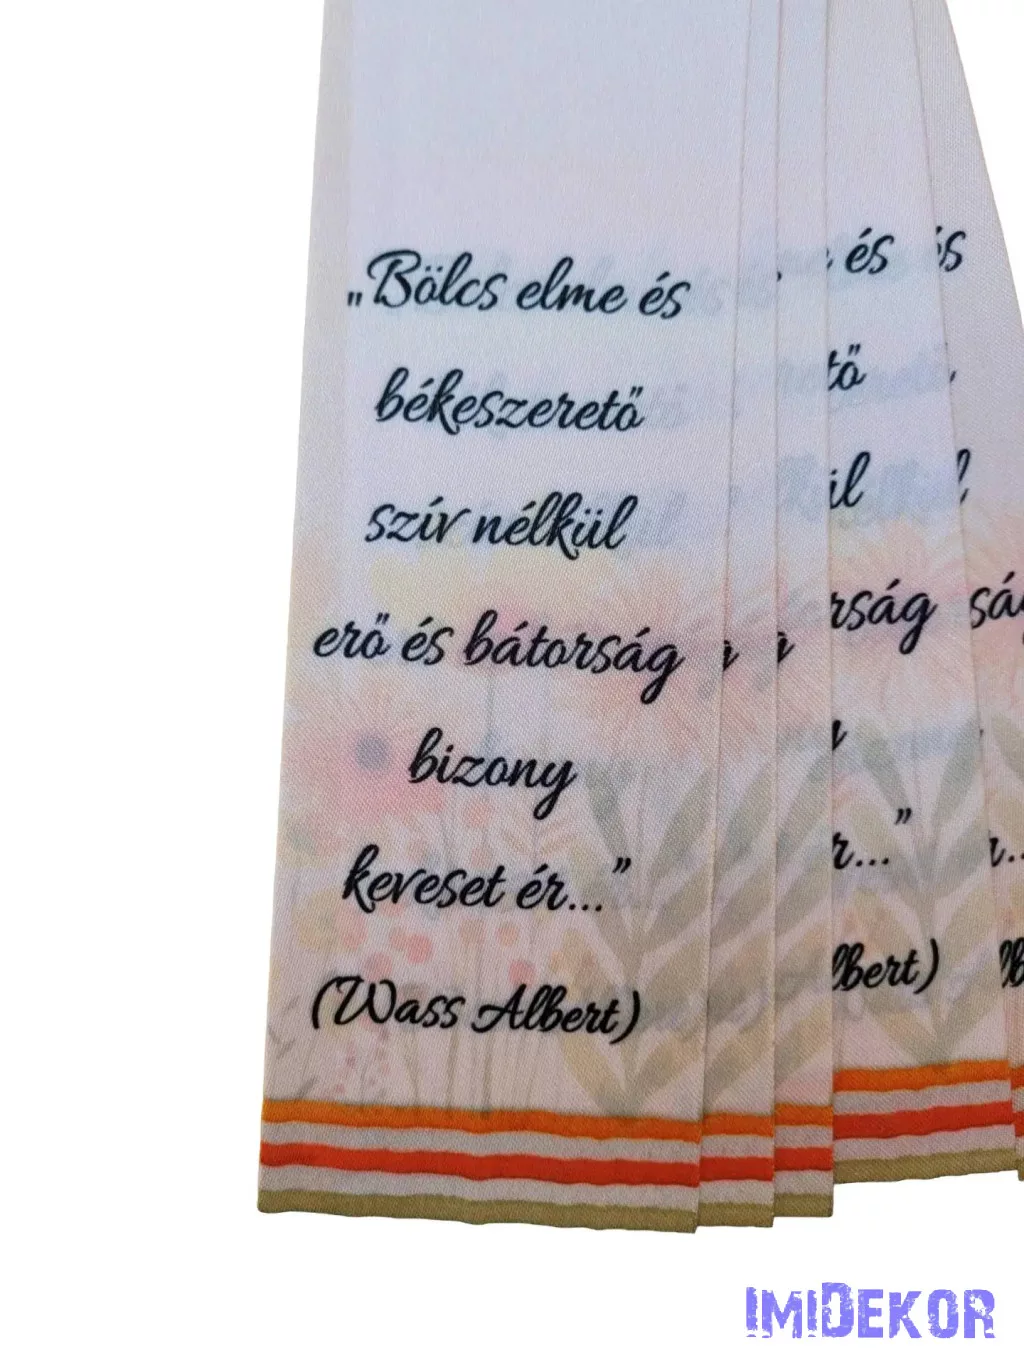 „Bölcs elme és
békeszerető
szív nélkül
erő és bátorság
bizony
keveset ér...”
(Wass Albert)
és
és
tő
ül
rság
r...”
lbert)
ImiDekor